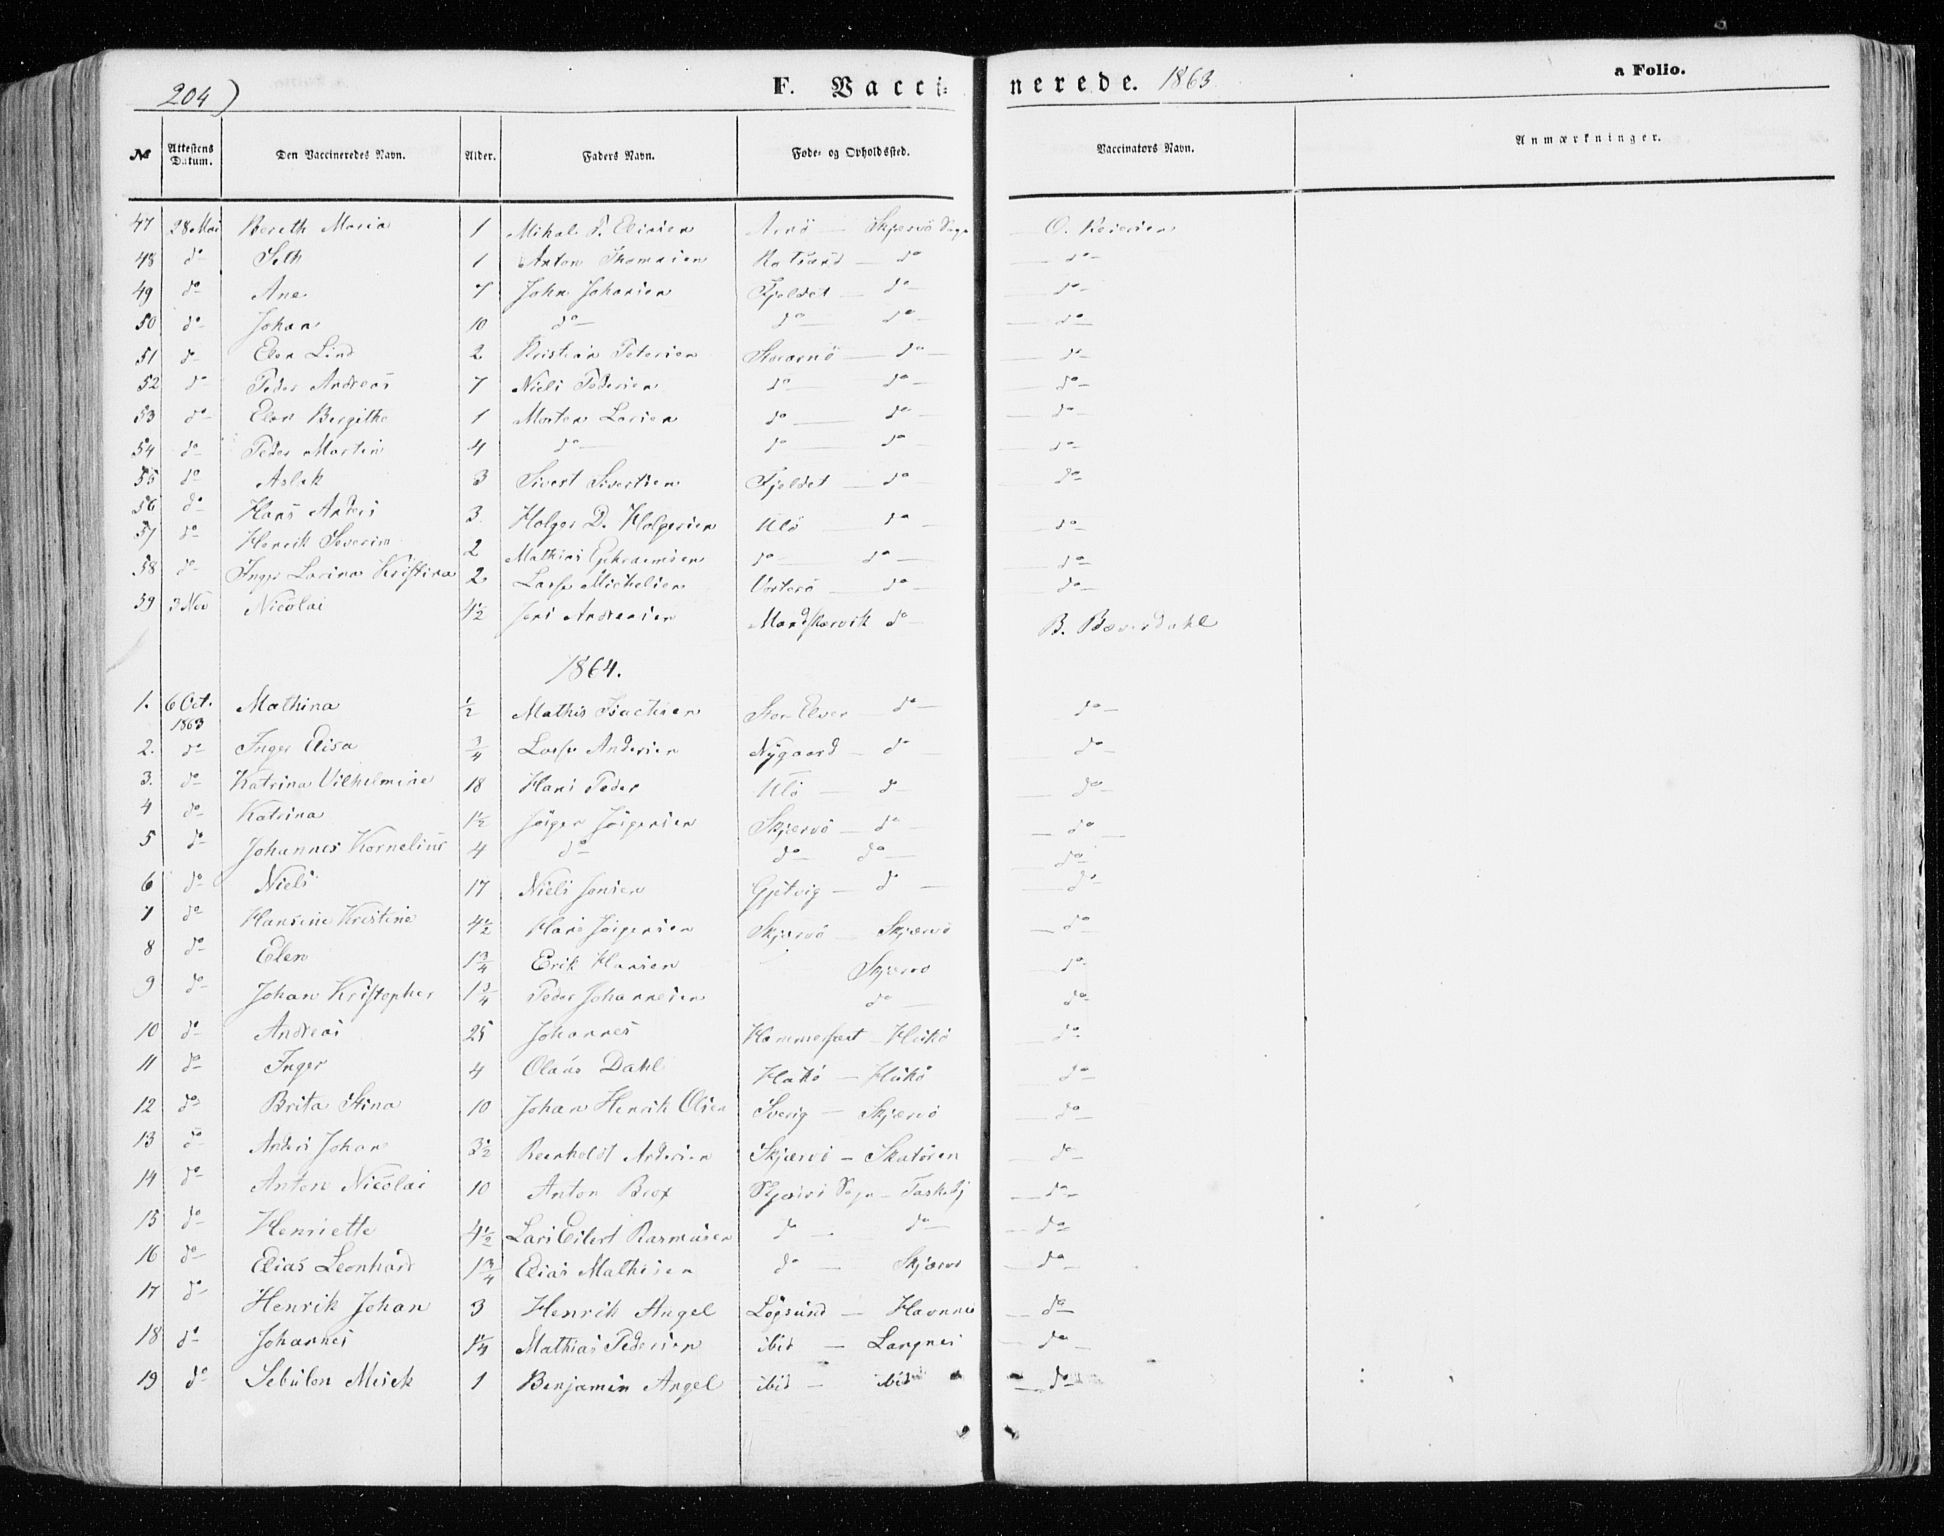 204)
F. Vaccinerede. 1863
a Folio.
№ Attestens Datum. Den Vaccineredes Navn. Alder. Faders Navn. Føde- og Opholdssted. Vaccinators Navn. Anmærkninger.
47 28 Mai Bereth Maria 1 Mikal P. Eliasen Arnö — Skjervö Sogn — O.
48 do Seth 1 Anton Thomasen — do — do
49 do Ane 7 John Johansen Fjeldet — do — do
50 do Johan 10 do do do — do
51 do Elen Lind 2 Kristian Petersen Storarnö — do — do
52 do Peder Andreas 7 Niels Pedersen do do — do
53 do Elen Bergithe 1 Morten Larsen do do — do
54 do Peder Martin 4 do do do — do
55 do Aslak 3 Sivert Sivertsen Fjeldet — do — do
56 do Hans Anders 3 Holger D. Holgersen Klö do — do
57 do Henrik Severin 2 Mathias Ephraimsen do do — do
58 do Inger Larina Kristina 2 Lars Mickelsen Vorterö — do — do
59 3 Nov Nicolai 4½ Jens Andreasen do B. Bæverdahl
1864.
1. 6 Oct. 1863 Mathina ½ Mathis Isachsen Stor Elver — do — do
2. do Inger Elisa ¾ Lars Andersen Nygaard — do — do
3. do Katrina Vilhelmine 18 Hans Peder Klö — do — do
4 do Katrina 1½ Jörgen Jörgensen Skjærvö — do — do
5 do Johannes Kornelius 4 do do do — do
6 do Niels 17 Niels Jensen — do — do
7 do Hansine Kristine 4½ Hans Jörgensen Skjærvö — Skjærvö — do
8 do Elen 1¾ Erik Hansen Skjærvö — do
9 do Johan Kristopher 1¾ Peder Johannesen do — do
10 do Andreas 25 Johannes Hammerfest — Hukö — do
11 do Inger 4 Olaus Dahl Hakö — Hukö — do
12 do Brita Stina 10 Johan Henrik Olsen Sverig — Skjærvö — do
13 do Anders Johan 3½ Reenholdt Andersen Skjærvö — Skatören — do
14 do Anton Nicolai 10 Anton Brox Skjærvö Sogn — Taskeby — do
15 do Henriette 4½ Lars Eilert Rasmusen do — do — do
16 do Elias Leonhard 1¾ Elias Mathisen do — Skjærvö — do
17 do Henrik Johan 3 Henrik Angel Lögsund — Havnnes — do
18 do Johannes 1¼ Mathias Pedersen ibid — Langnes — do
19 do Sebulon Mesek 1 Benjamin Angel ibid — ibid — do